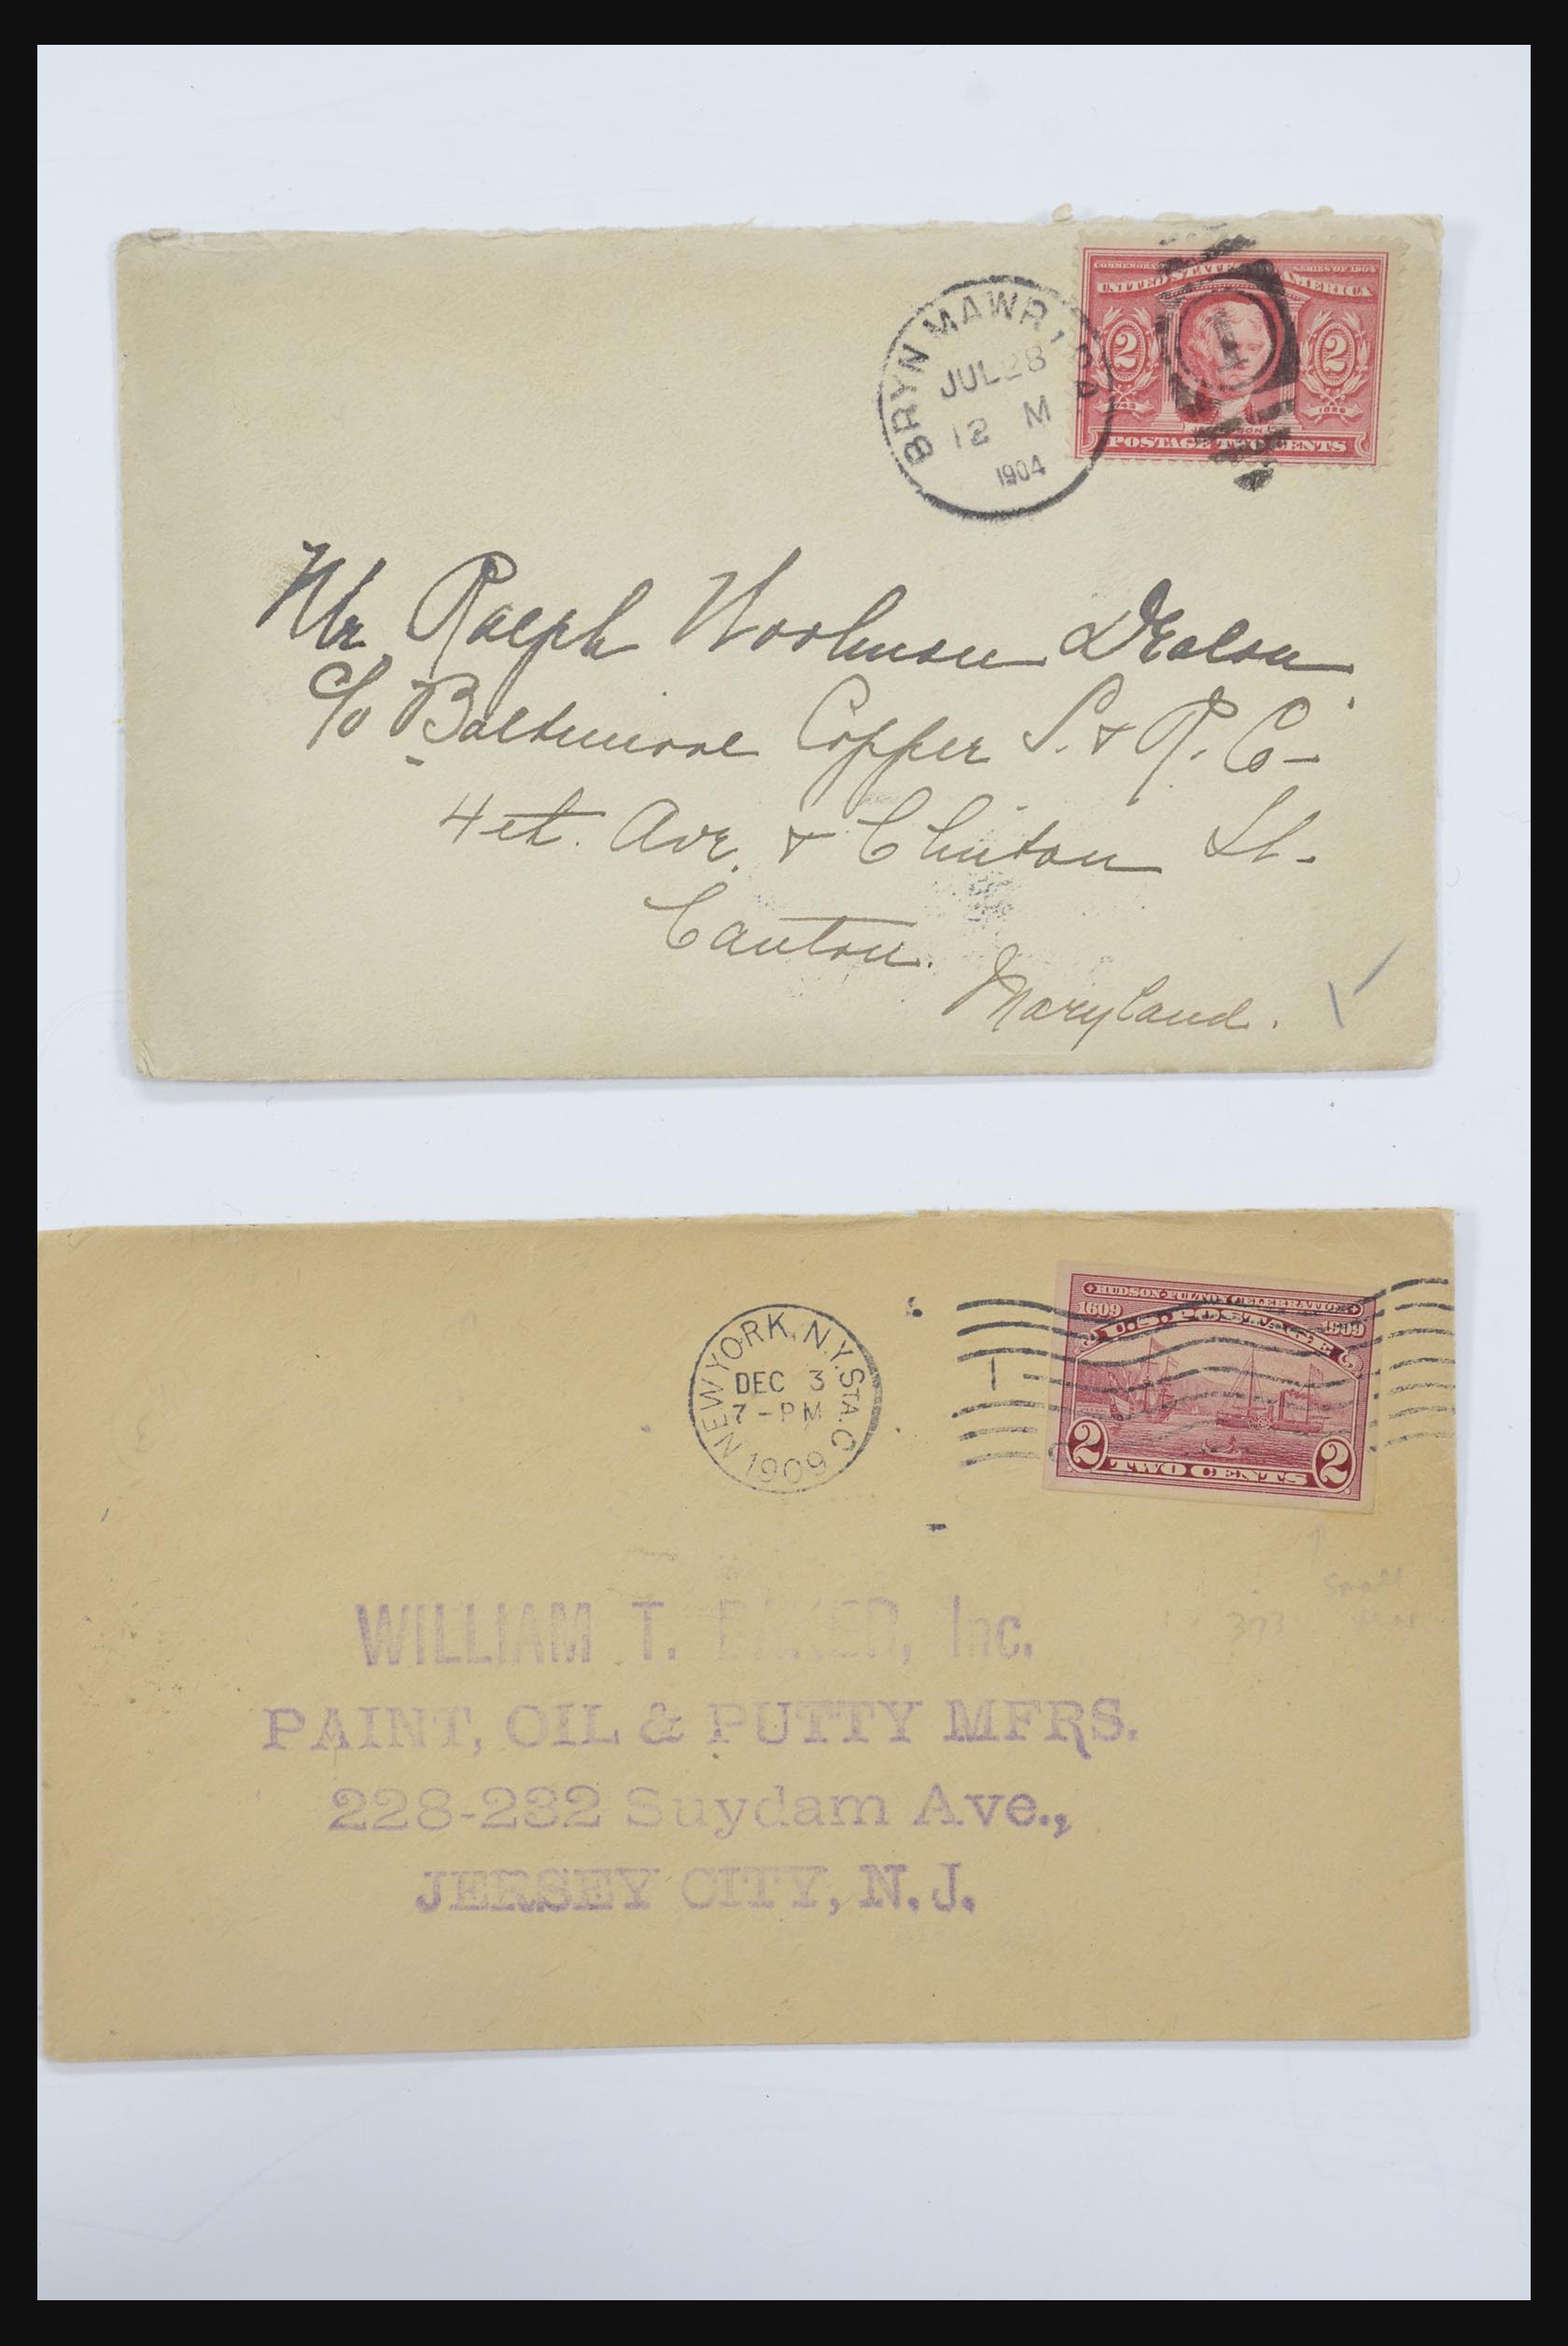 COMMEMORATIVE SERIES OF 1904
UNITED STATES AMERICA
2 2
POSTAGE TWO CENTS
1
BRYN MAWR, PA
JUL 28
12 M
1904
Mr Ralph Woolman
c/o Baltimore Copper S. & R. Co-
4et. Ave. & Clinton St.
Canton.
Maryland.
HUDSON-FULTON CELEBRATION
1609 1909
U.S. POSTAGE
2 2
TWO CENTS
NEW YORK, N.Y. STA. C
DEC 3
7-PM
1909
1
WILLIAM T. BAKER, Inc.
PAINT, OIL & PUTTY MFRS.
228-232 Suydam Ave.,
JERSEY CITY, N. J.
373